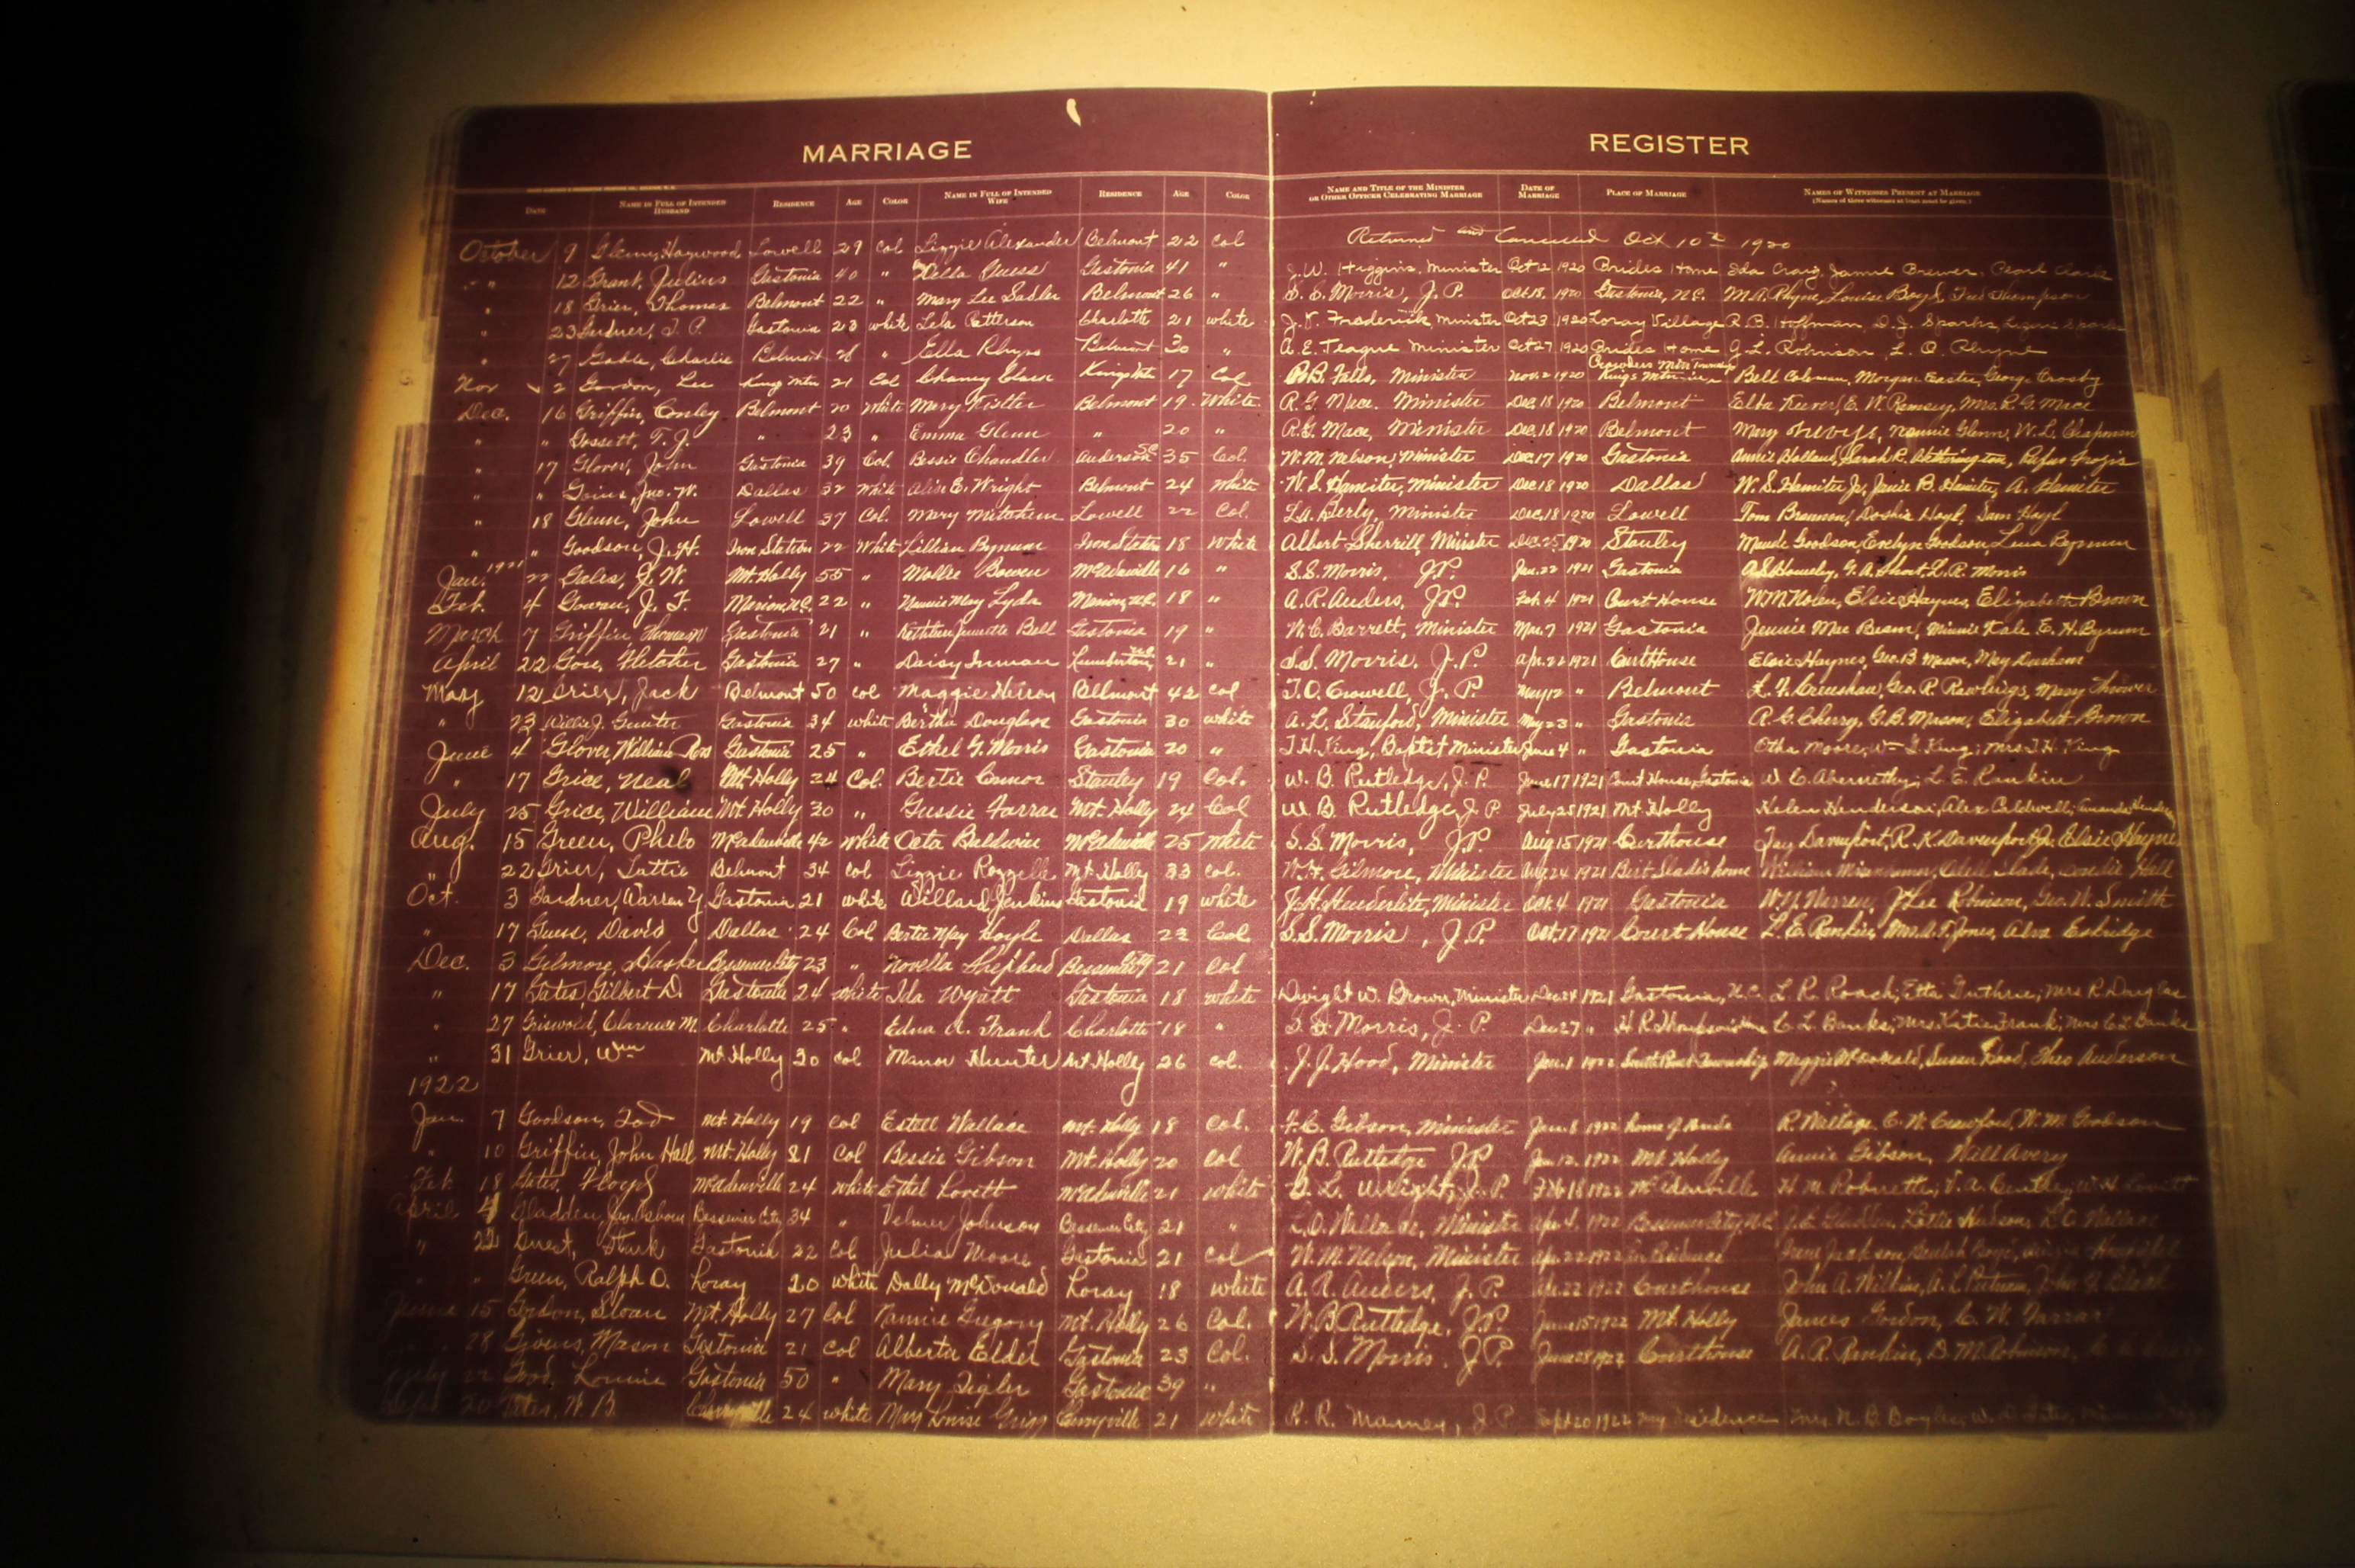 MARRIAGE REGISTER
DATE NAME IN FULL OF INTENDED HUSBAND RESIDENCE AGE COLOR NAME IN FULL OF INTENDED WIFE RESIDENCE AGE COLOR NAME AND TITLE OF THE MINISTER OR OTHER OFFICER CELEBRATING MARRIAGE DATE OF MARRIAGE PLACE OF MARRIAGE NAMES OF WITNESSES PRESENT AT MARRIAGE
(Names of three witnesses at least must be given.)
October 9 Glenn, Haywood Lowell 29 col Lizzie Alexander Belmont 22 col Returned and Canceled Oct 10th 1920
" 12 Grant, Julius Gastonia 40 " Guess Gastonia 41 " J.W. Higgins, Minister Oct 12 1920 Brides Home Ida Craig, Jamie Brewer, Pearl Clark
" 18 Grier, Thomas Belmont 22 " Mary Lee Sadler Belmont 26 " S. S. Morris, J. P. Oct. 18, 1920 Gastonia, N.C. M.A. Rhyne, Louise Boyd, Fred Thompson
" 23 Gardner, J. P. Gastonia 23 white Lela Patterson Charlotte 21 white J. V. Frederick, Minister Oct 23 1920 Loray Village R. B. Hoffman, D. J. Sparks, Sparks
" 27 Gable, Charlie Belmont " Ella Rhyne Belmont 30 " A. E. Teague Minister Oct 27 1920 Brides Home J. L. Robinson, L. O. Rhyne
Nov 2 Gordon, Lee Kings Mtn 21 Col Kings Mtn 17 Col Falls, Minister Nov. 2 1920 Crowders Mtn Township Kings Mtn Bell Coleman, Morgan Easter, George Crosby
Dec. 16 Griffin, Conley Belmont 20 White Mary Kistler Belmont 19 White R. G. Mace, Minister Dec. 18 1920 Belmont Elba Keever, E. W. Ramsey, Mrs. R. G. Mace
" " Gossett, T. J. " 23 " Emma Glenn " 20 " R. G. Mace, Minister Dec. 18 1920 Belmont Mary Nannie Glenn, W. L. Chapman
" 17 Glover, John Gastonia 39 Col. Bessie Chandler Anderson S.C. 35 Col. W. M. Nelson, Minister Dec. 17 1920 Gastonia Annie Holland, Sarah R. Hetherington, Rufus
" " Jno. W. Dallas 32 White Alice E. Wright Belmont 24 White W. S. Hamiter, Minister Dec. 18 1920 Dallas W. S. Hamiter Jr, Janie B. Hamiter, A. Hamiter
" 18 Glenn, John Lowell 37 Col. Mary Mitchem Lowell 22 Col. Minister Dec. 18 1920 Lowell Tom Brannon, Doshia Hoyl, Sam Hoyl
" " Goodson, J. H. Iron Station 22 White Lillian Bynum Iron Station 18 White Albert Sherrill, Minister Dec. 25 1920 Stanley Maude Goodson, Evelyn Goodson, Lena Bynum
Jan. 1921 22 Gales, J. W. Mt. Holly 55 " Mollie Bowen McAdenville 16 " S. S. Morris, J.P. Jan. 22 1921 Gastonia G. A. Short, L. R. Morris
Feb. 4 Gowan, J. F. Marion, N.C. 22 " Nannie May Lyda Marion, N.C. 18 " A. R. Anders, J.P. Feb. 4 1921 Court House W. M. Nolen, Elsie Haynes, Elizabeth Brown
March 7 Griffin, Thomas W Gastonia 21 " Kathleen Bell Gastonia 19 " W. C. Barrett, Minister Mar. 7 1921 Gastonia Jennie Mae Beam, Minnie Kale, E. H. Bynum
April 22 Fletcher Gastonia 27 " Daisy Inman Lumberton, N.C. 21 " S. S. Morris, J. P. Apr. 22 1921 Court House Elsie Haynes, Geo. B. Mason, May Durham
May 12 Grier, Jack Belmont 50 col Maggie Herron Bellmont 42 col T. O. Crowell, J. P. May 12 " Belmont L. F. Crenshaw, Geo. R. Rawlings, Mary Thrower
" 23 Willie J. Gunter Gastonia 34 white Bertha Douglass Gastonia 30 white A. L. Stanford, Minister May 23 " Gastonia R. G. Cherry, G. B. Mason, Elizabeth Brown
June 4 Glover, William Ross Gastonia 25 " Ethel G. Morris Gastonia 20 " J. H. King, Baptist Minister June 4 " Gastonia Otha Moore, King, Mrs J. H. King
" 17 Grice, Neal Mt. Holly 24 Col. Bertie Connor Stanley 19 Col. W. B. Rutledge, J. P. June 17 1921 Court House, Gastonia W. E. Abernethy, L. E. Rankin
July 25 Grice, William Mt. Holly 30 " Gussie Farrar Mt. Holly 24 Col W. B. Rutledge, J. P July 25 1921 Mt Holly Helen Henderson, Alex Caldwell,
Aug. 15 Green, Philo McAdenville 42 white Octa Baldwin McAdenville 25 white S. S. Morris, J P Aug 15 1921 Courthouse Fay Davenport, R. K. Davenport Jr, Elsie Hayne
" 22 Grier, Lattie Belmont 34 col Lizzie Rozzelle Mt. Holly 33 col. W. H. Gilmore, Minister Aug 24 1921 home William Odell Slade, Hall
Oct. 3 Gardner, Warren Y Gastonia 21 white Willard Jenkins Gastonia 19 white J. H. Henderlite, Minister Oct. 4 1921 Gastonia W. Y. Warren, J Lee Robinson, Geo. W. Smith
" 17 Guess, David Dallas 24 Col Bertie May Hoyle Dallas 22 Col. S. S. Morris, J. P. Oct. 17 1921 Court House L. E. Rankin, Mrs. A. T. Jones, Alva Eskridge
Dec. 3 Gilmore, Hasker Bessemer City 23 " Novella Shepherd Bessemer City 21 Col
" 17 Gates, Gilbert D. Gastonia 24 white Ida Wyatt Gastonia 18 white Dwight W. Brown, Minister Dec 24 1921 Gastonia, N.C. L. R. Roach, Etta Guthrie, Mrs R. Douglas
" 27 Griswold, Clarence M. Charlotte 25 " Edna A. Frank Charlotte 18 " S. S. Morris, J. P. Dec 27 " C. L. Banks, Mrs. Katie Frank, Mrs C L Banks
" 31 Grier, Wm Mt Holly 30 col Manor Hunter Mt Holly 26 col. J. J. Hood, Minister Jan. 1 1922 South Point Township Maggie McDonald, Susan Hood, Theo Anderson
1922
Jan. 7 Goodson, Tod Mt. Holly 19 col Estell Wallace Mt. Holly 18 col. F. C. Gibson, Minister Jan. 8 1922 home of Bride R. Wallace, C. W. Crawford, W. M. Goodson
" 10 Griffin, John Hall Mt. Holly 21 Col Bessie Gibson Mt. Holly 20 col W. B. Rutledge J.P Jan 12. 1922 Mt Holly Annie Gibson, Will Avery
Feb. 18 Gates, Floyd McAdenville 24 white Ethel Lovitt McAdenville 21 white L. Wright, J. P. Feb 18 1922 McAdenville H. M. Robinette,
April 4 Gladden, Jas. Osborn Bessemer City 34 " Velmer Johnson Bessemer City 21 " L. O. Wallace, Minister Apr 4. 1922 Bessemer City, N.C. Lettie Hudson, L. O. Wallace
" 22 Gastonia 22 Col. Julia Moore Gastonia 21 col W. M. Nelson, Minister Apr. 22 1922 Residence Irene Jackson, Beulah
" " Green, Ralph O. Loray 20 white Dolly McDonald Loray 18 white A. R. Anders, J. P. Apr. 22 1922 Courthouse John A. Wilkins, A. L. Putnam, John G. Black
June 15 Gordon, Sloan Mt. Holly 27 Col Fannie Gregory Mt. Holly 26 Col. W. B. Rutledge, J.P June 15 1922 Mt. Holly James Gordon, C. W. Farrar
" 28 Givens, Mason Gastonia 21 Col Alberta Elder Gastonia 23 Col. S. S. Morris, J. P. June 28 1922 Courthouse A. R. Rankin, D. M. Robinson,
July 22 Good, Gastonia 50 " Mary Zigler Gastonia 39 "
Sept 20 W. B. Cherryville 24 white May Louise Grigg Cherryville 21 white R. R. J. P Sept 20 1922 My residence Mrs. N. B. Boyles,